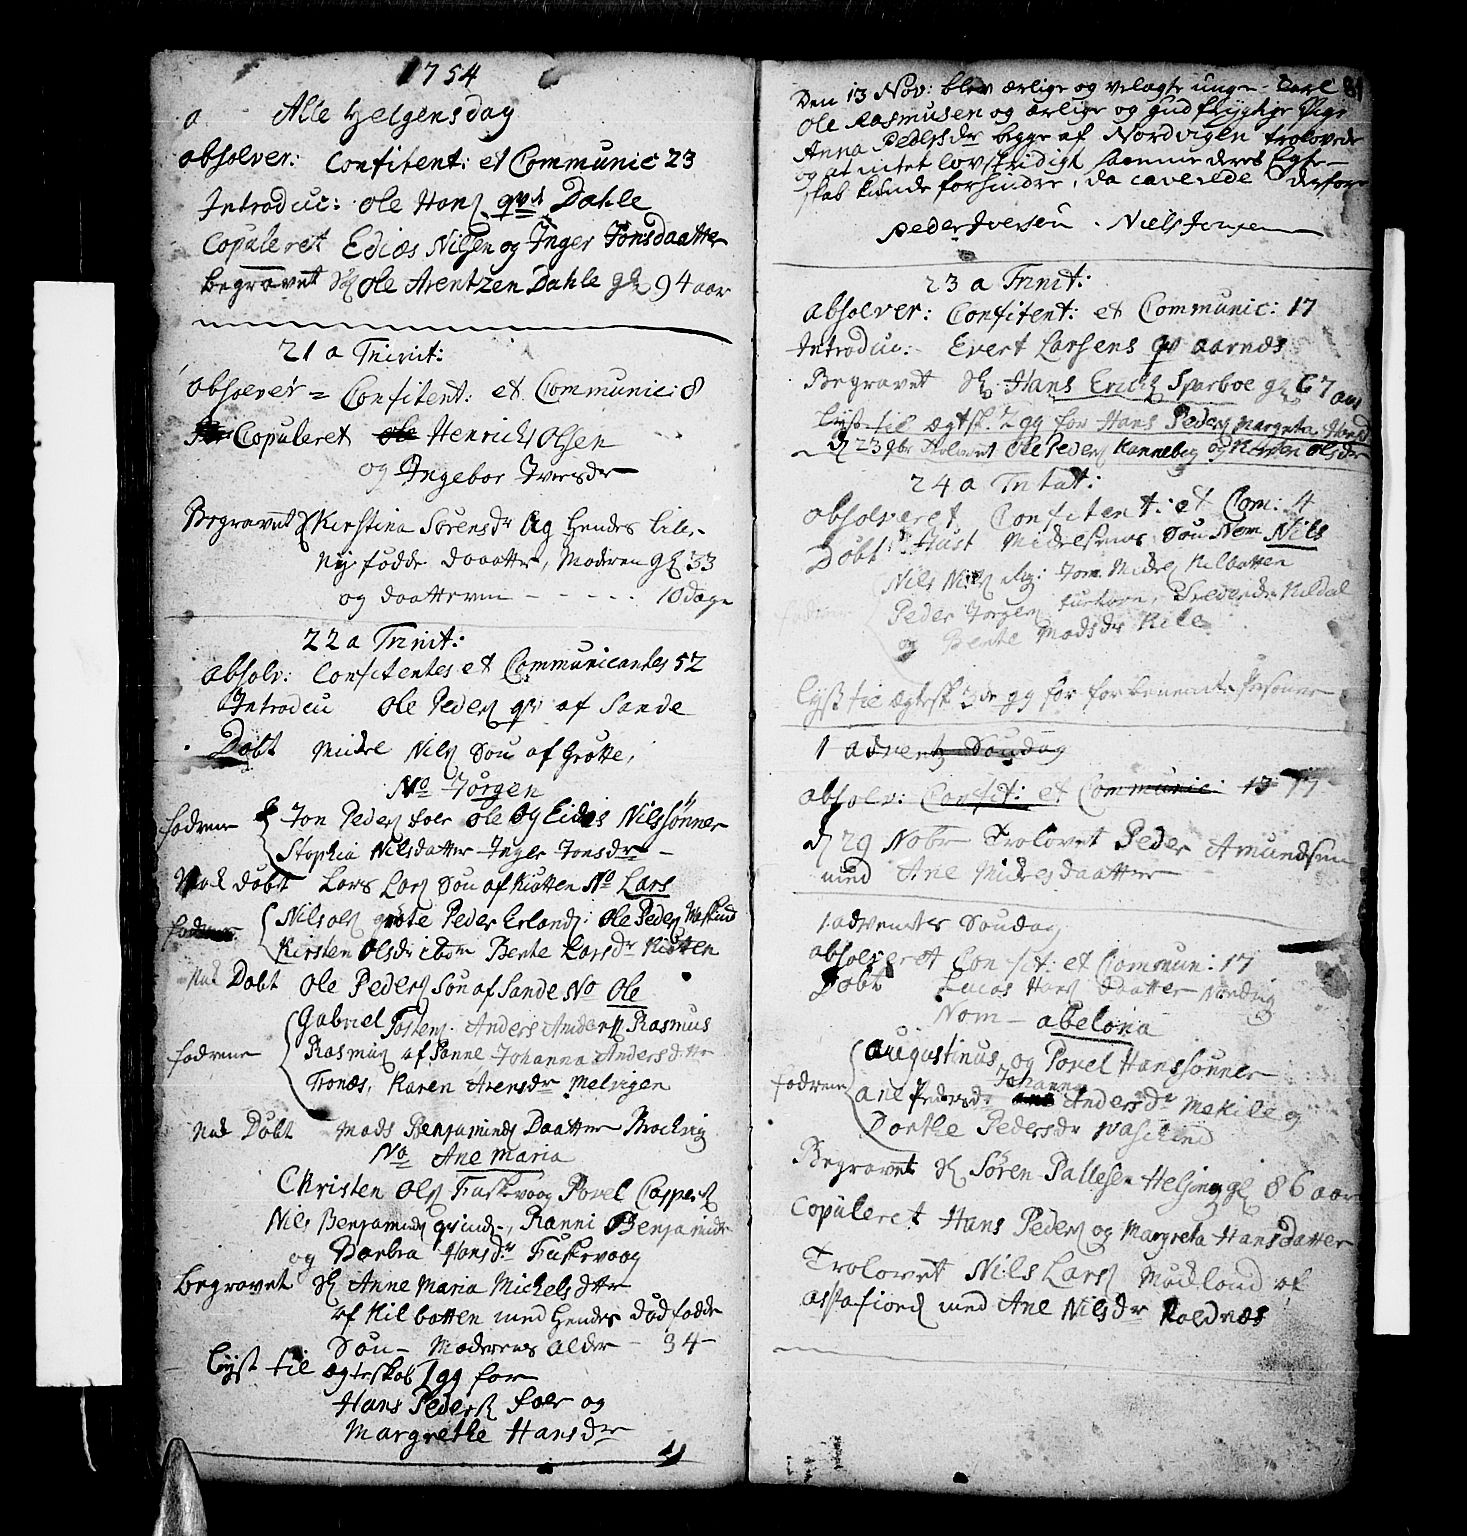 1754
a Alle Helgensdag
absolver: Confitent: et Communic 23
Introduc: Ole Hans qvi Dahle
Copuleret Edias Nilsen og Inger Jonsdaatter
Begravet Sl Ole Arentzen Dahle gl 94 aar
21 a Trinit:
absolver = Confitent: et Communic: 8
Copuleret Henrich Olsen
og Ingebor Iversdr
Begravet Kirstina Sørensdr og Hendes lille
Ny fødde daaatter, Moderen gl 33
og daatteren - - - - - 10 dage
22 a Trinit:
absolv: Confitentes et Communicantes 52
Introdcu Ole Peders qvi af Sande
Døbt Michel Nils Søn af Grøtte,
No Jørgen
fadrene Jon Peders foer Ole og Eidis Nilssønner
Stophia Nilsdatter Inger Jonsdr
Nok døbt Lars Lars Søn af Kiøtten No Lars
fadrene Nils Ols grøte Peder Erlands: Ole Peders
Kirsten Olsdr ibm Bente Larsdr Kiøtten
Nok Døbt Ole Peders Søn af Sande No Ole
Gabriel Tostens. Anders Anders Rasmus
fadrene Rasmus af Sanne Johanna Andersdtte
Tronæs, Karen Arensdr Melvigen
Nok Døbt Mads Benjamins Daatter Brochvig
No Ane Maria
Christen Ols Fuskevaag Povel Caspers
Nils Benjamins qvinde, Ranni Benjamindr
og Barbra Hansdr Fuskevaag
Begravet Sl Anne Maria Michelsdtte
af Kilbotten med Hendes død fødde
Søn - Moderens alder - 34 -
Lyst til ægteskab 1 gg for
Hans Peders foer og
Margrethe Hansdr
81
Den 13 Nov: blev ærlige og velagte unge Carl
Ole Rasmusen og ærlige og gudfrygtige Pige
Anna Pedersdr begge af Nordvigen trolovede
og at intet lovstridigt kunne deres Egte-
skab kunde forhindre, da caverede derfore
Peder Iversen . Niels Jensen
23 a Trinit:
absolver: Confitent: et Communic: 17
Introduc: Evert Larsens qv Aarnæs
Begravet Sl Hans Erichs Sparboe gl 67 aar
Lyst til ægtsk 2 gg for Hans Peders Margreta Hansd
d 23 9br trolovet Ole Peders Kanneb og Kirsten Olsdr
24 a Trinitat:
absolveret Confitent: et Com: 4
Døbt Michelsens Søn Nom Nils
Nils Nils Jon Michels Kilbotten
fadr Peder Jørgens
og Bente Madsdr Kile
Lyst til ægtesk 3de gg for forbenente Personer
1 Adventz Søndag
absolv: Confit: et Communic: 13 17
d 29 Nobr Trolovet Peder Amundsen
med Ane Michesdaatter
1. adventes Søndag
absolveret Confit: et Commun: 17
Døbt Lucas Hans Daatter Nordvig
Nom - Abelona
Augustinus og Povel Hanssønner
fadrene Ane Pedersdr Johanna Andersdr Mekile og
Dorthe Pedersdr Vaschind
Begravet Sl Søren Pallesen Helsing gl 86 aar
Copuleret Hans Peders og Margreta Hansdatter
Trolovet Nils Lars Madland af
Aspafiord med Ane Nilsdr Roldnæs